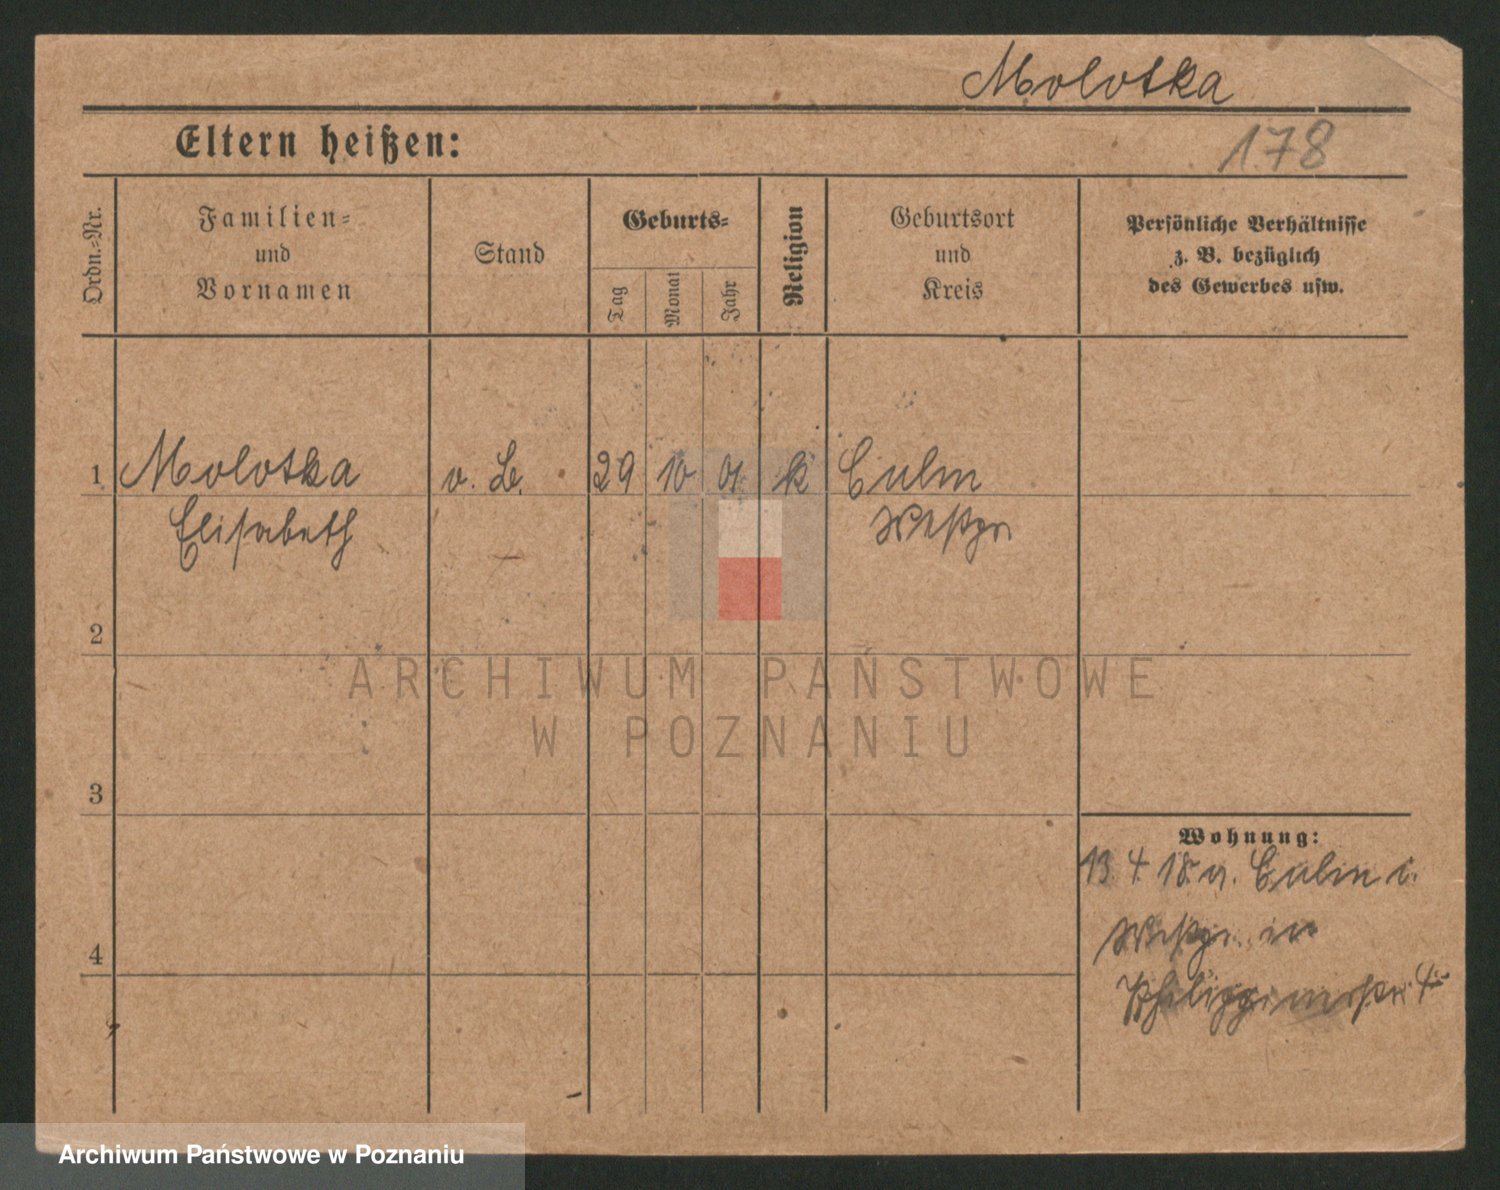 Molotka
Eltern heißen:
178
Ordn.-Nr.
Familien-
und
Vornamen
Stand
Geburts-
Tag
Monat
Jahr
Religion
Geburtsort
und
Kreis
Persönliche Verhältnisse
z. B. bezüglich
des Gewerbes usw.
1
Molotka
Elisabeth
29
10
01
k
Culm
Westpr
2
3
4
Wohnung:
13. 4. 18. v. Culm i.
Westpr. in
ARCHIWUM PAŃSTWOWE
W POZNANIU
Archiwum Państwowe w Poznaniu